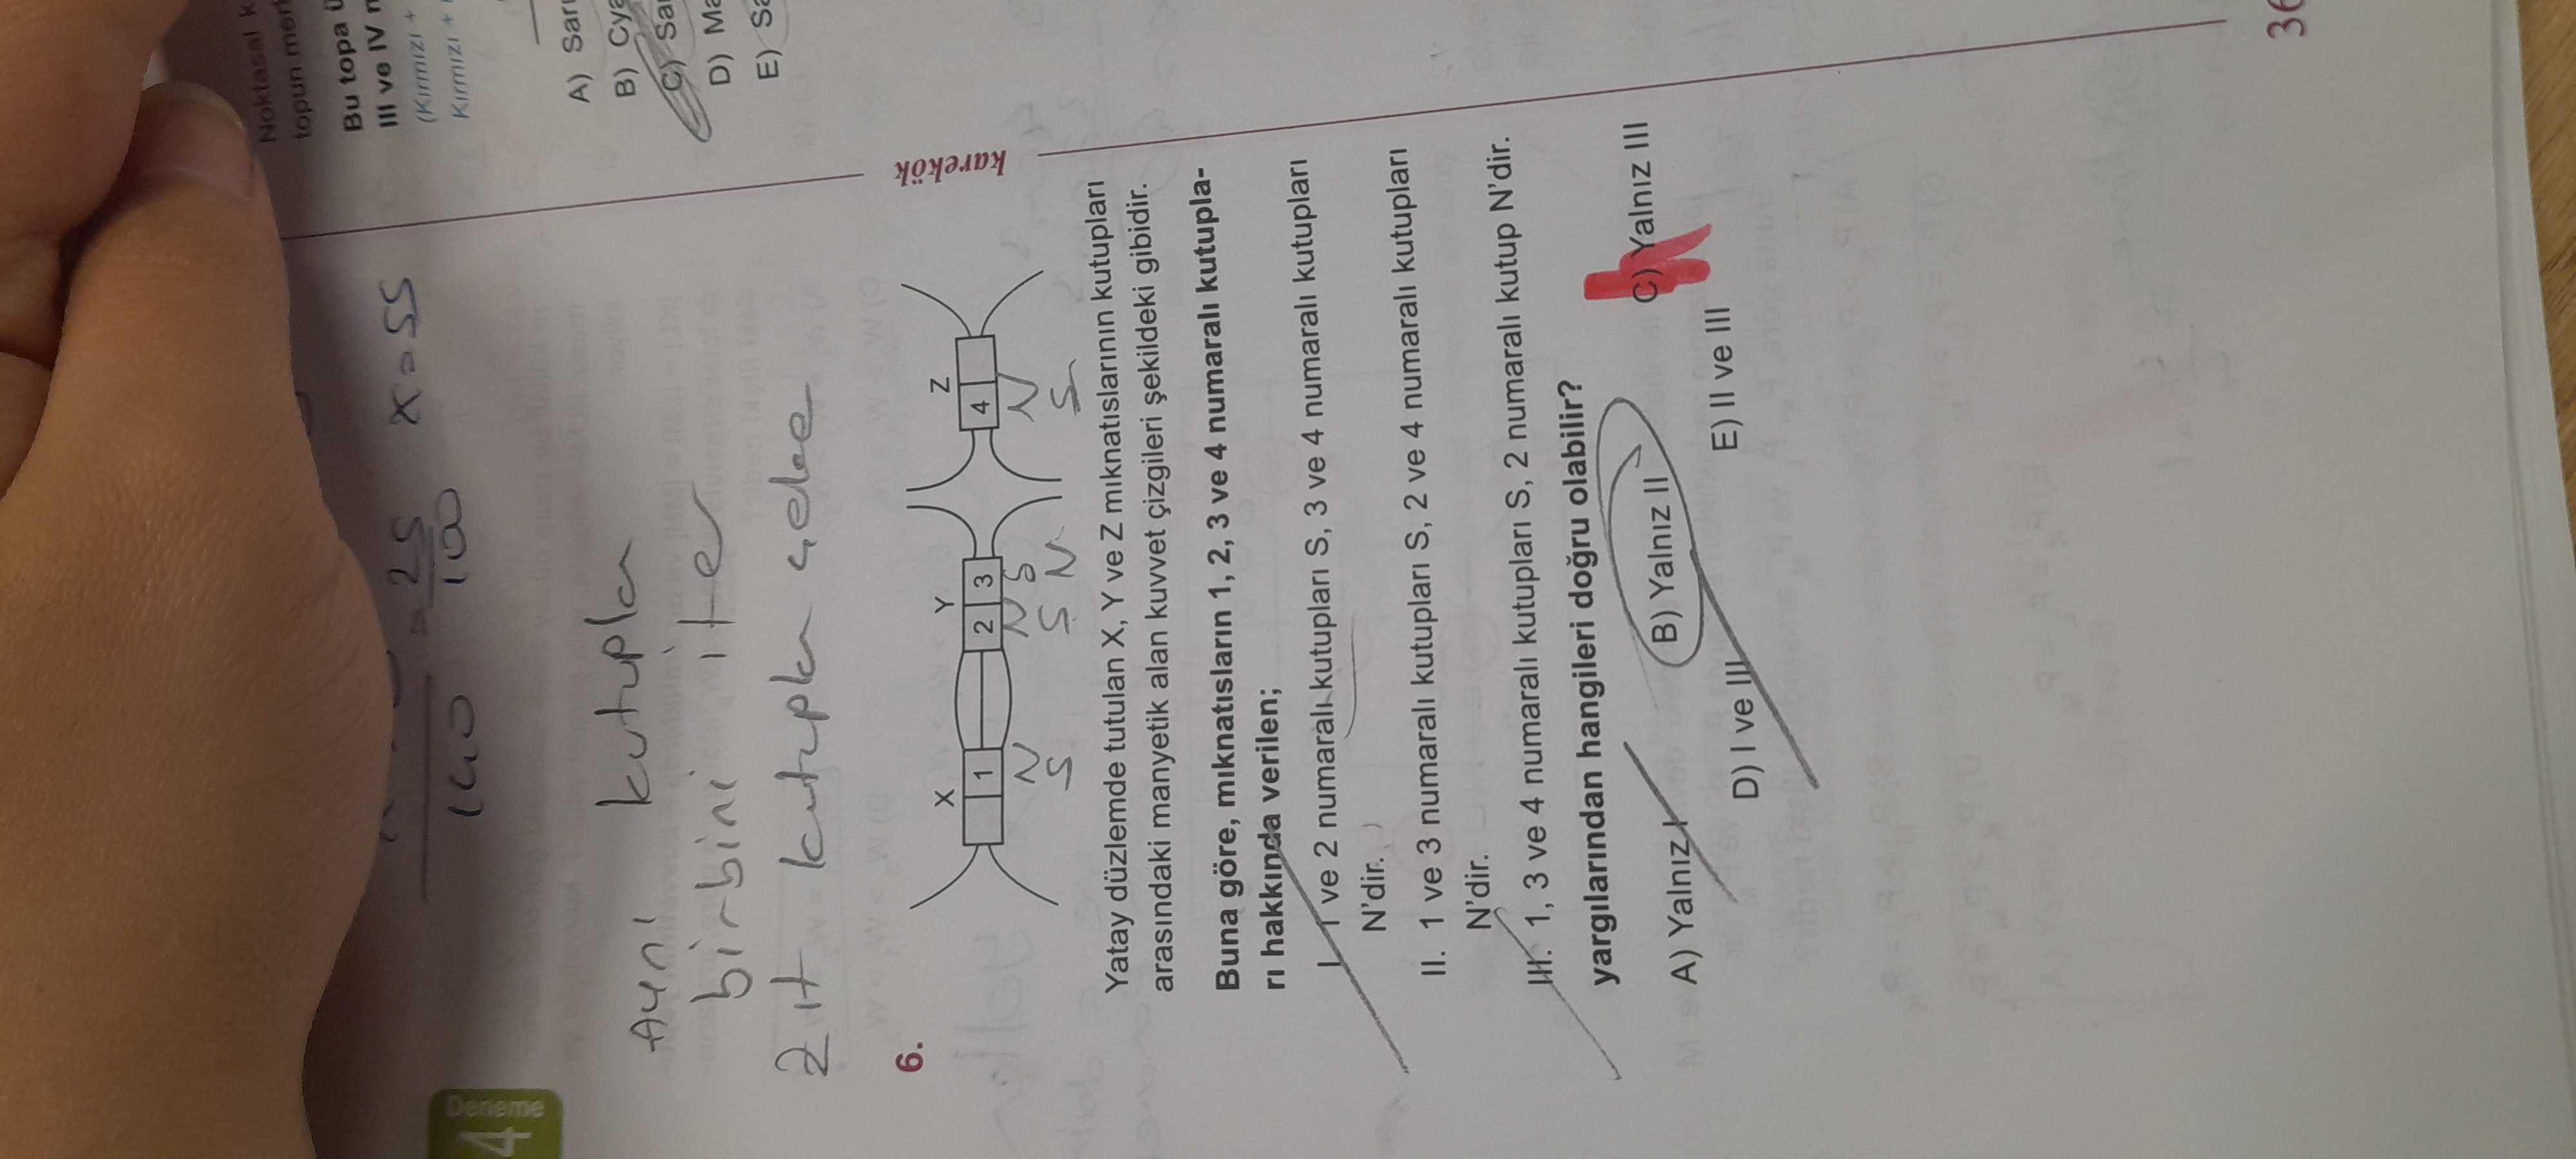 4
Deneme
140
= 25
100
x = 55
Ayni kutupla
birbini iter
zıt kutupla
6.
X
Y
Z
1
2 3
4
N
N S
N
S
S N
S
Yatay düzlemde tutulan X, Y ve Z mıknatıslarının kutupları
arasındaki manyetik alan kuvvet çizgileri şekildeki gibidir.
Buna göre, mıknatısların 1, 2, 3 ve 4 numaralı kutupla-
rı hakkında verilen;
I. 1 ve 2 numaralı kutupları S, 3 ve 4 numaralı kutupları
N'dir.
II. 1 ve 3 numaralı kutupları S, 2 ve 4 numaralı kutupları
N'dir.
III. 1, 3 ve 4 numaralı kutupları S, 2 numaralı kutup N'dir.
yargılarından hangileri doğru olabilir?
A) Yalnız I
B) Yalnız II
C) Yalnız III
D) I ve III
E) II ve III
karekök
Noktasal
topun
Bu topa
III ve IV
(Kırmızı +
Kırmızı +
A) Sarı
B)
C)
D)
E)